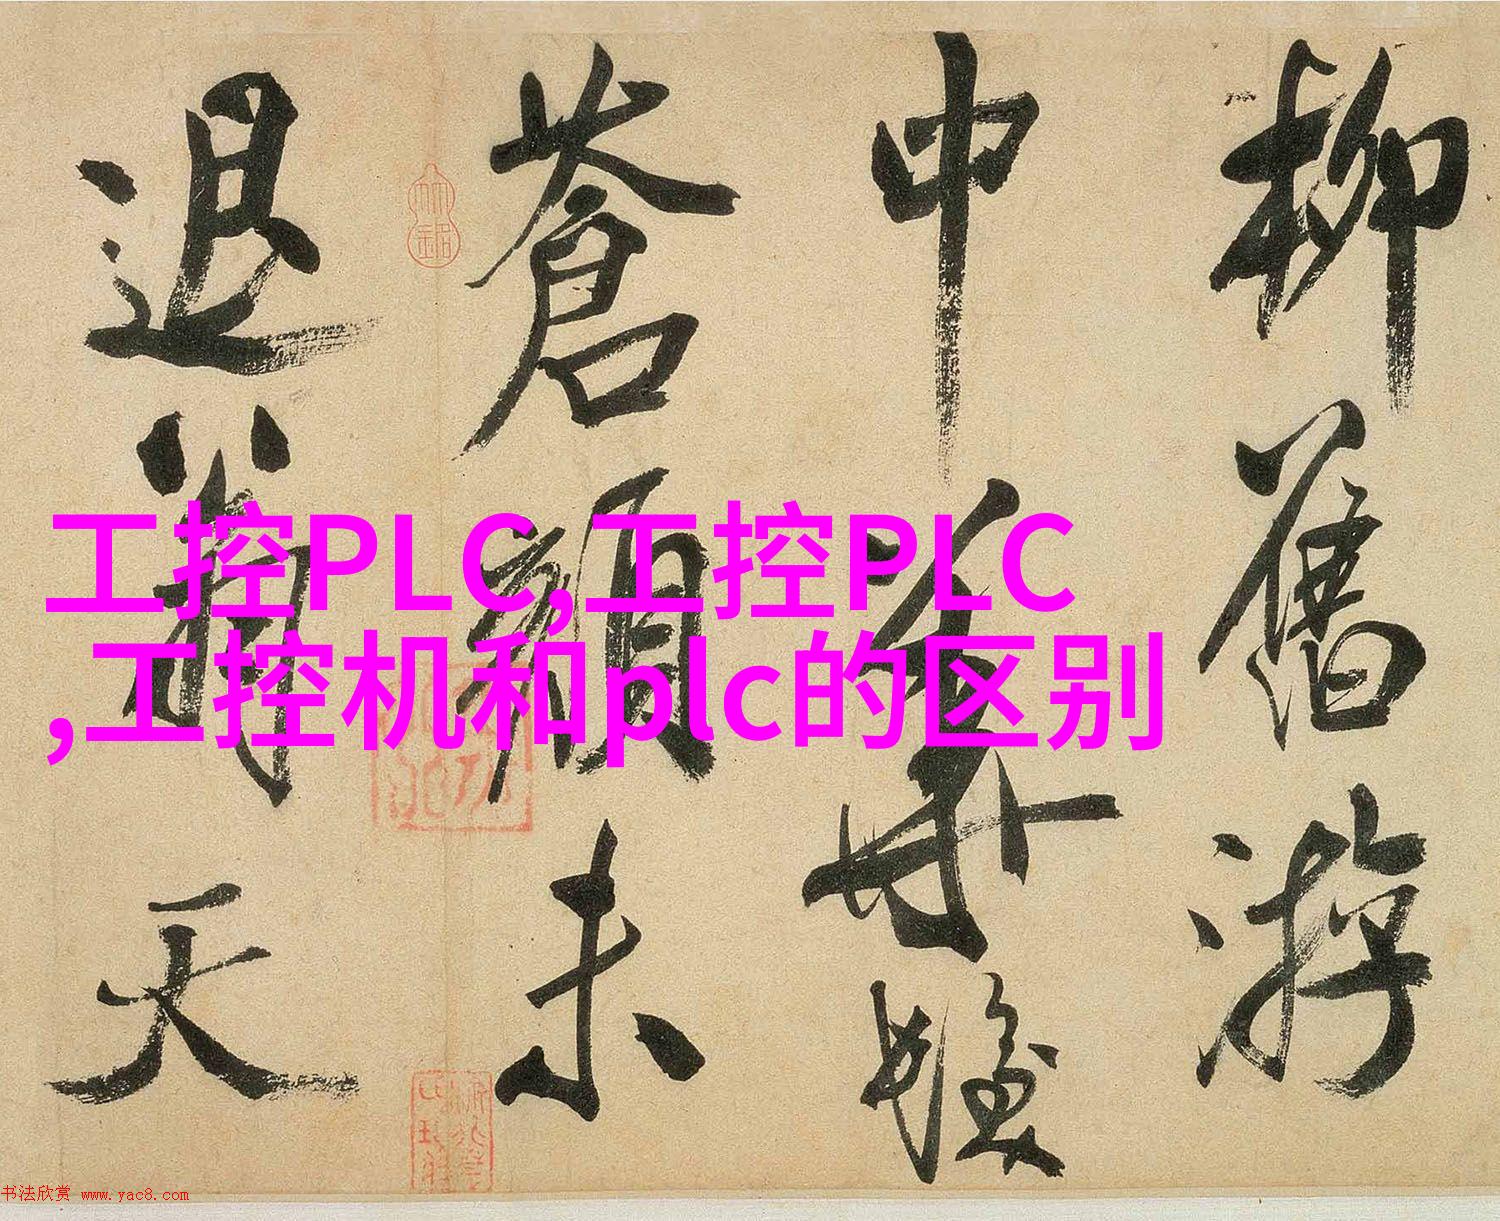 柳舊游
中華髮
蒼顏未
退翁天
工控PLC,工控PLC
,工控机和plc的区别
书法欣赏 www.yac8.com